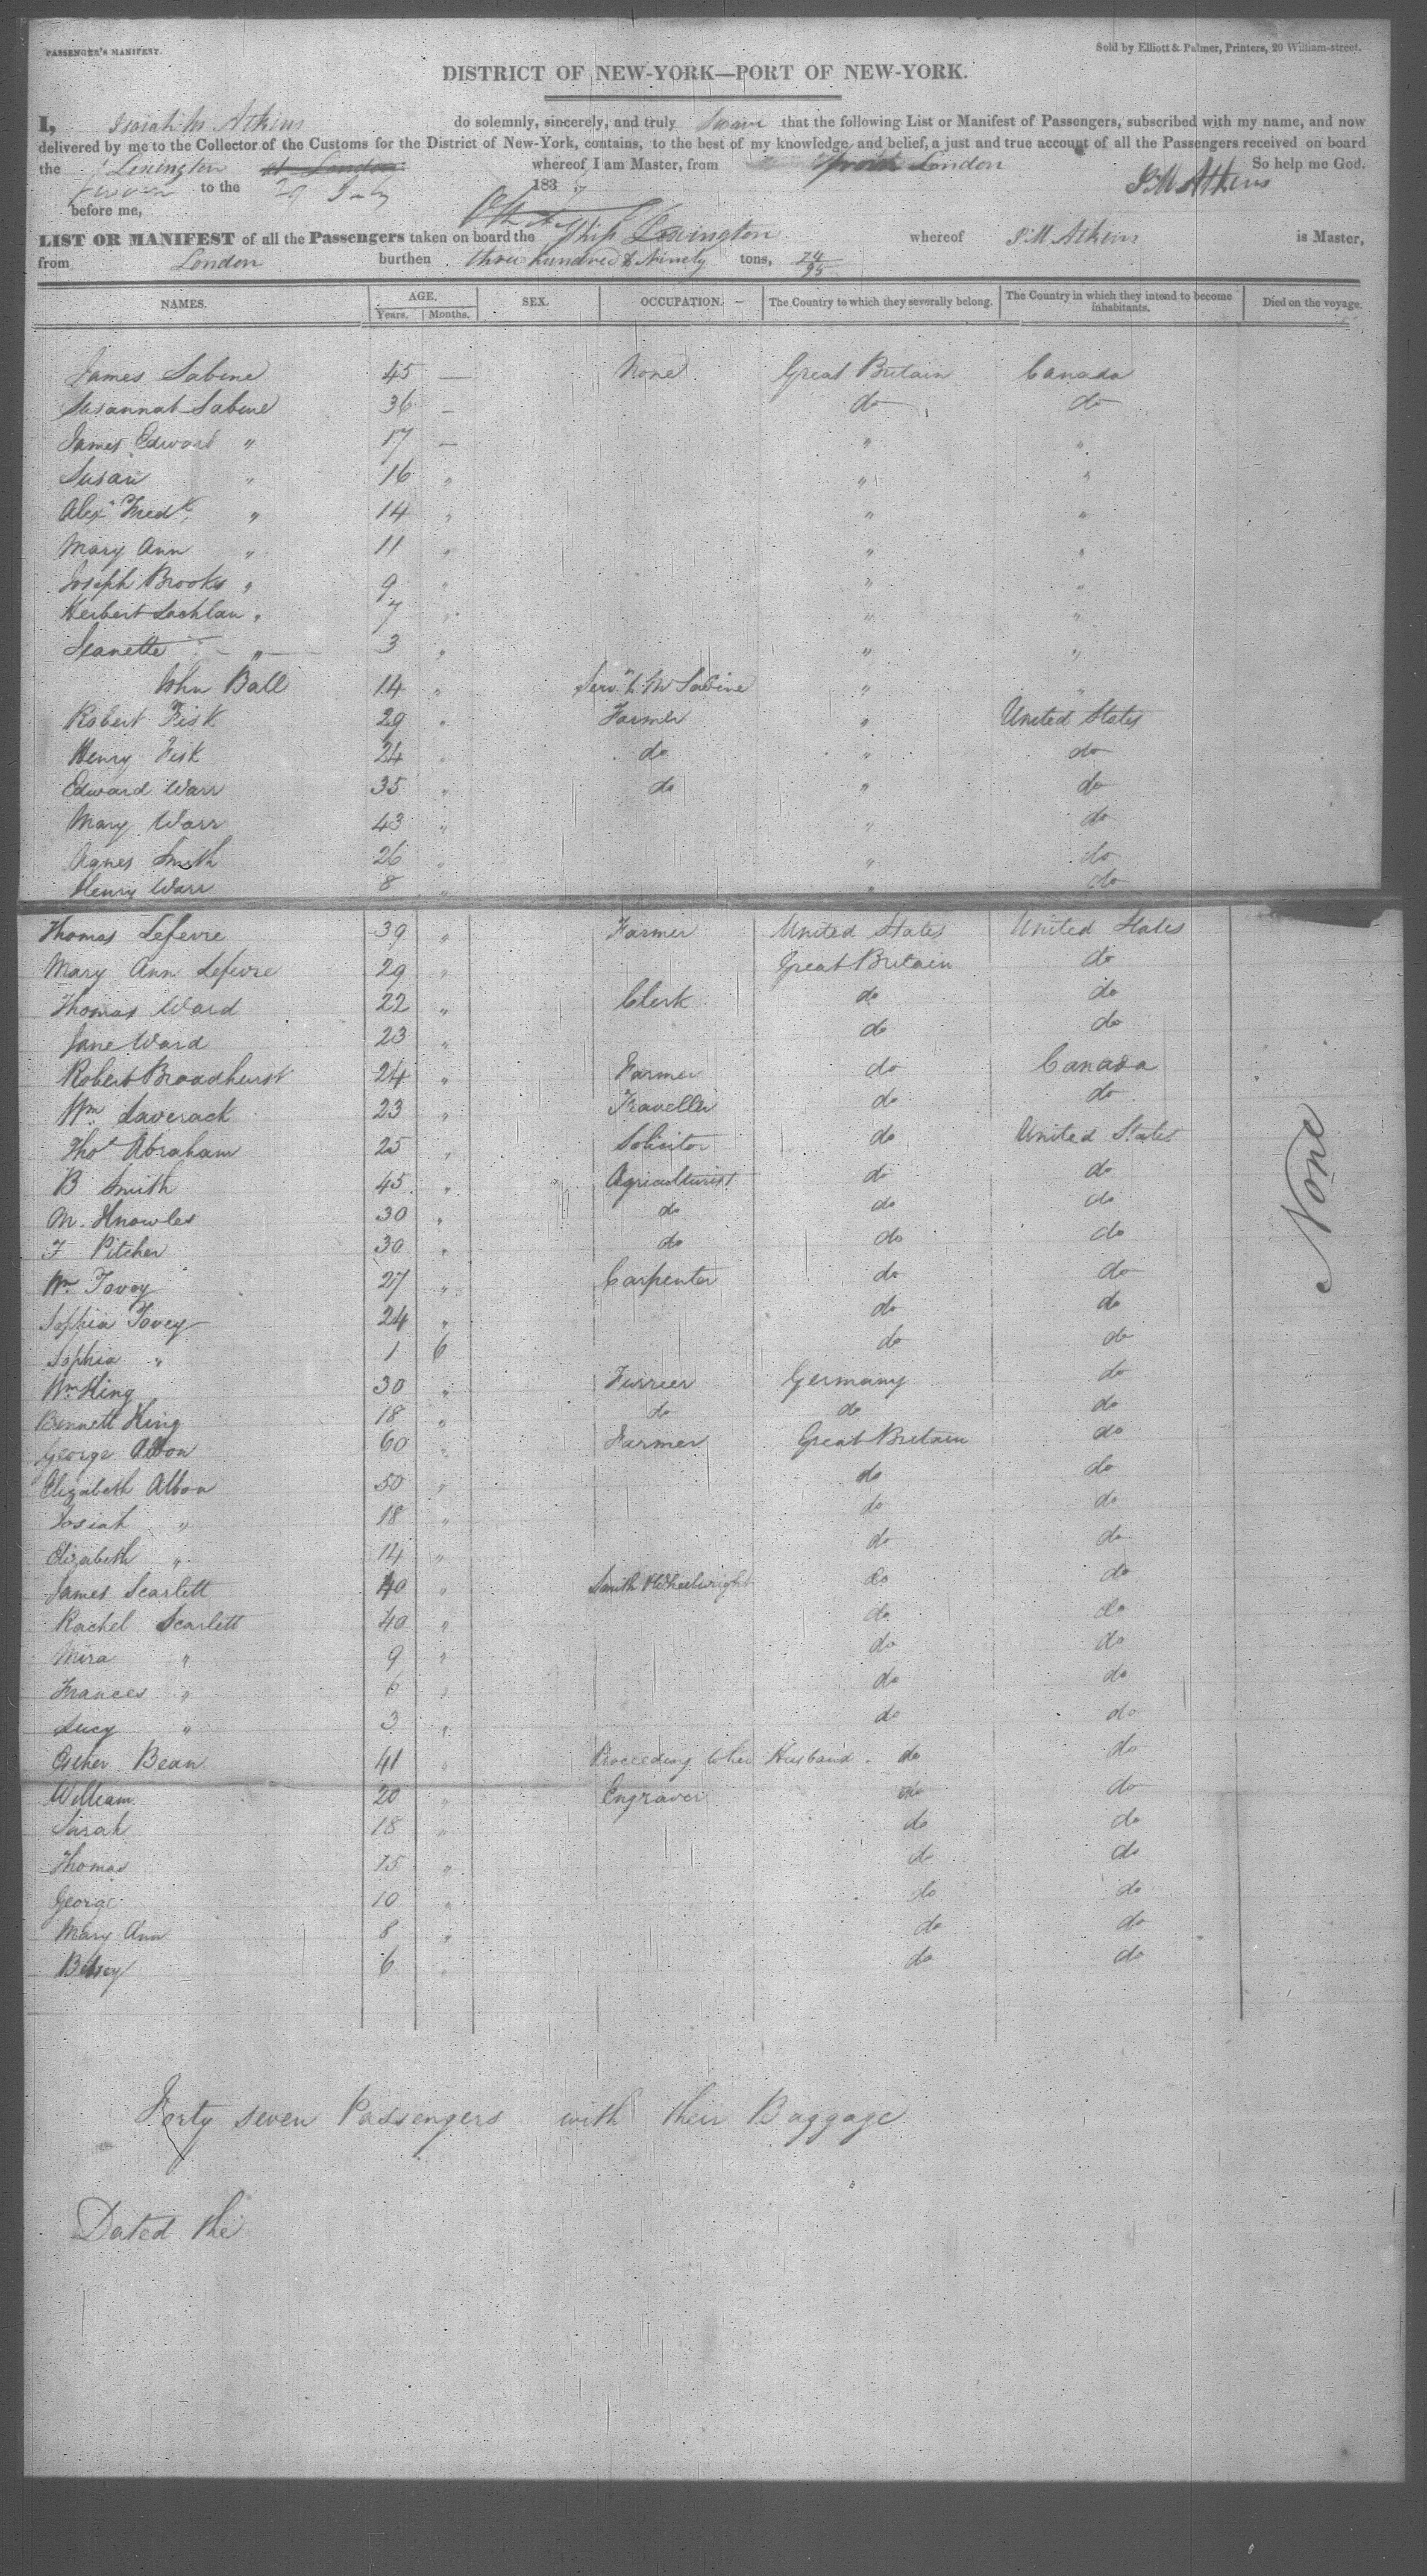 PASSENGER'S MANIFEST.
Sold by Elliott & Palmer, Printers, 20 William-street.
DISTRICT OF NEW-YORK—PORT OF NEW-YORK.
I, Isaiah M Atkins do solemnly, sincerely, and truly Swear that the following List or Manifest of Passengers, subscribed with my name, and now
delivered by me to the Collector of the Customs for the District of New-York, contains, to the best of my knowledge and belief, a just and true account of all the Passengers received on board
the Lexington at London whereof I am Master, from London So help me God.
Sworn to the 29 July 183 I M Atkins
before me,
LIST OR MANIFEST of all the Passengers taken on board the Ship Lexington whereof I M Atkins is Master,
from London burthen three hundred & Ninety tons, 74/95
NAMES. AGE. SEX. OCCUPATION. The Country to which they severally belong. The Country in which they intend to become inhabitants. Died on the voyage.
Years. Months.
James Sabine 45 — None Great Britain Canada
Susannah Sabine 36 — do do
James Edward " 17 — " "
Susan " 16 " " "
Alexr Fredk " 14 " " "
Mary Ann " 11 " " "
Joseph Brooks " 9 " " "
Herbert Lachlan " 7 " " "
Jeanette " 3 " " "
John Ball 14 " Servt to Mr Sabine " "
Robert Fisk 29 " Farmer " United States
Henry Fisk 24 " do " do
Edward Warr 35 " do " do
Mary Warr 43 " " do
Agnes Smith 26 " " do
Henry Warr 8 " " do
Thomas Lefevre 39 " Farmer United States United States
Mary Ann Lefevre 29 " Great Britain do
Thomas Ward 22 " Clerk do do
Jane Ward 23 " do do
Robert Broadhurst 24 " Farmer do Canada
Wm Laverack 23 " Traveller do do
Thos Abraham 25 " Solicitor do United States
B Smith 45 " Agriculturist do do
M. Knowles 30 " do do do
F Pitcher 30 " do do do
Wm Tovey 27 " Carpenter do do
Sophia Tovey 24 " do do
Sophia " 1 6 do do
Wm King 30 " Furrier Germany do
Bennett King 18 " do do do
George Albon 60 " Farmer Great Britain do
Elizabeth Albon 50 " do do
Josiah " 18 " do do
Elizabeth " 14 " do do
James Scarlett 40 " Smith & Wheelwright do do
Rachel Scarlett 40 " do do
Mira " 9 " do do
Frances " 6 " do do
Lucy " 3 " do do
Esther Bean 41 " Proceeding to her Husband do do
William 20 " Engraver do do
Sarah 18 " do do
Thomas 15 " do do
George 10 " do do
Mary Ann 8 " do do
Betsey 6 " do do
None
Forty seven Passengers with their Baggage
Dated the